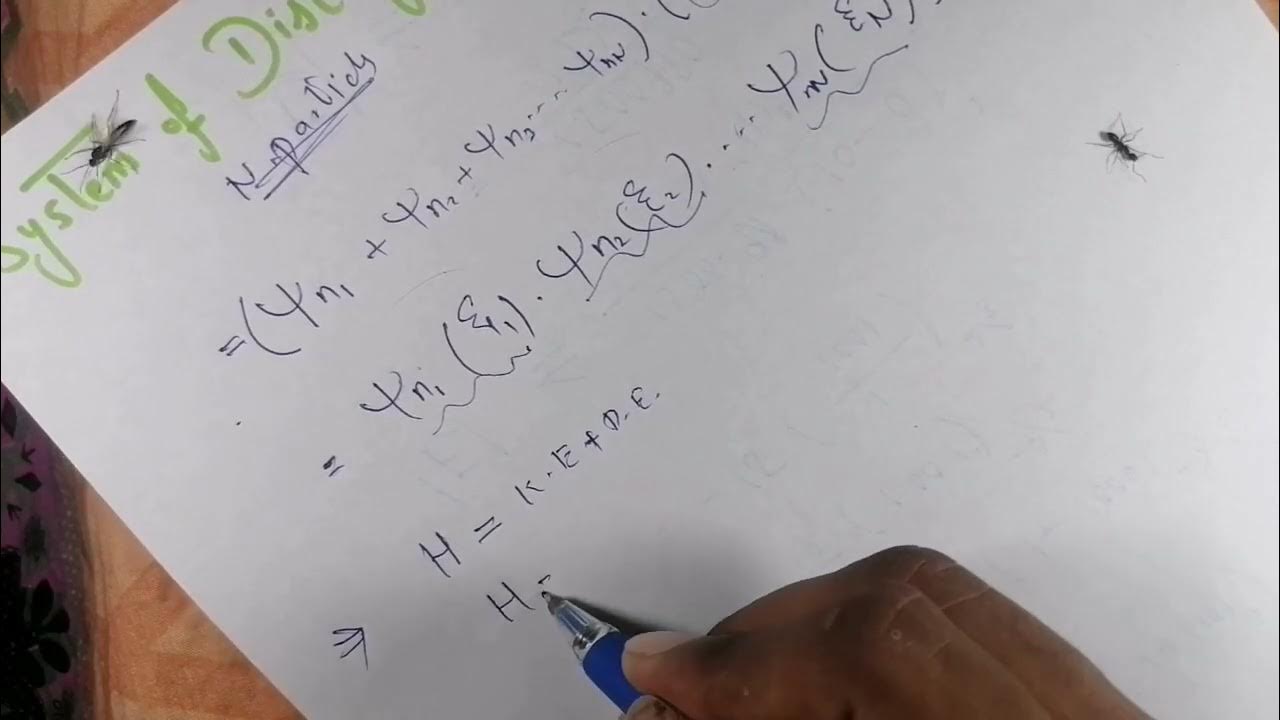 System of Dist
N-particles
= (Ψn₁ + Ψn₂ + Ψn₃ .... Ψn_N) . (
= Ψn₁(ξ₁) . Ψn₂(ξ₂) . .... Ψn_N(ξ_N)
H = K.E + P.E.
⇒ H =